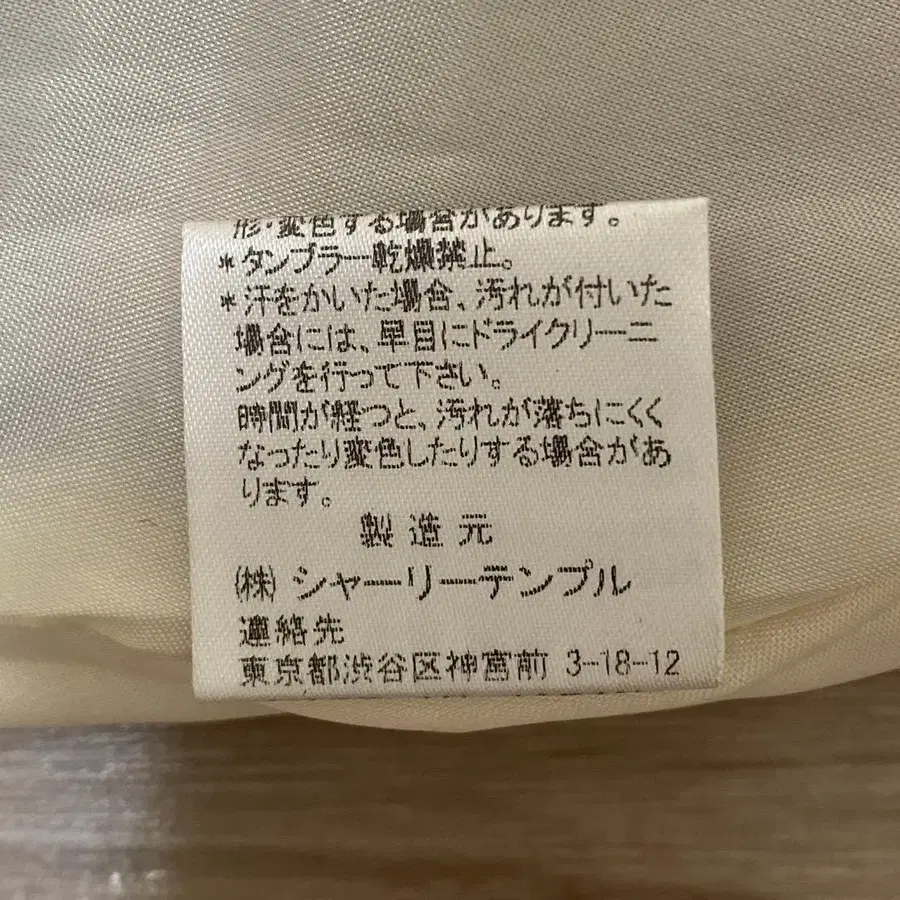 形・変色する場合があります。
*タンブラー乾燥禁止。
*汗をかいた場合、汚れが付いた
場合には、早目にドライクリーニ
ングを行って下さい。
時間が経つと、汚れが落ちにくく
なったり変色したりする場合があ
ります。
製造元
(株)シャーリーテンプル
連絡先
東京都渋谷区神宮前 3-18-12